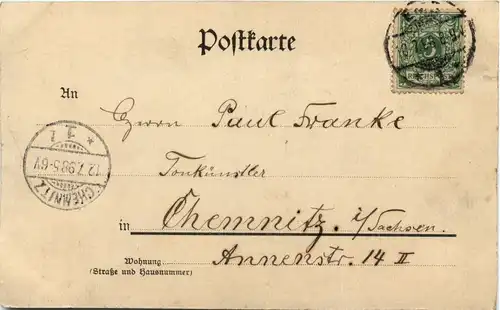 Postkarte
REICHSPOST
An
Herrn Paul Franke
Tonkünstler
in Chemnitz i/Sachsen.
Wohnung
(Straße und Hausnummer)
Annenstr. 14 II
* 1
12.7.98.5-6V
CHEMNITZ